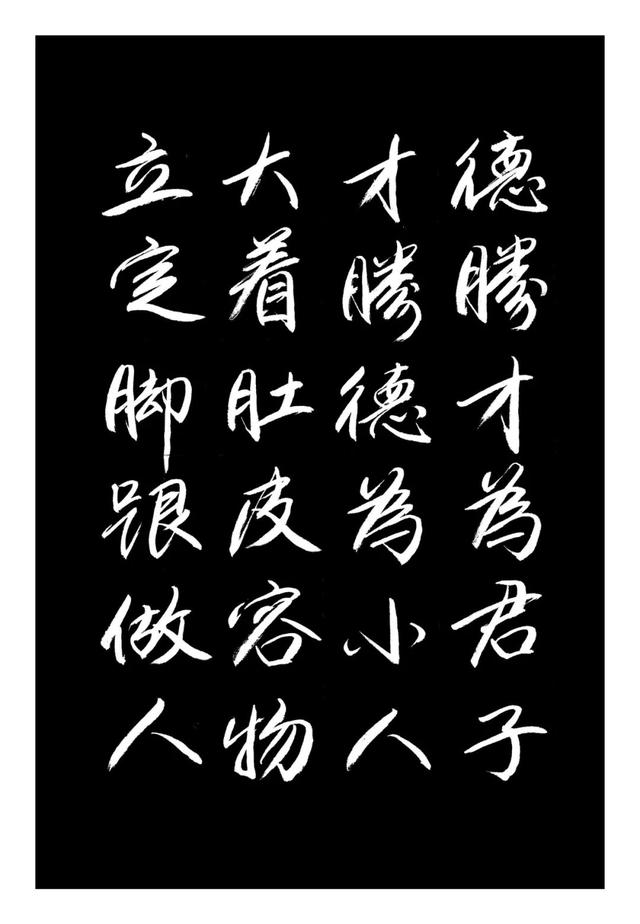 德勝才為君子
才勝德為小人
大着肚皮容物
立定脚跟做人